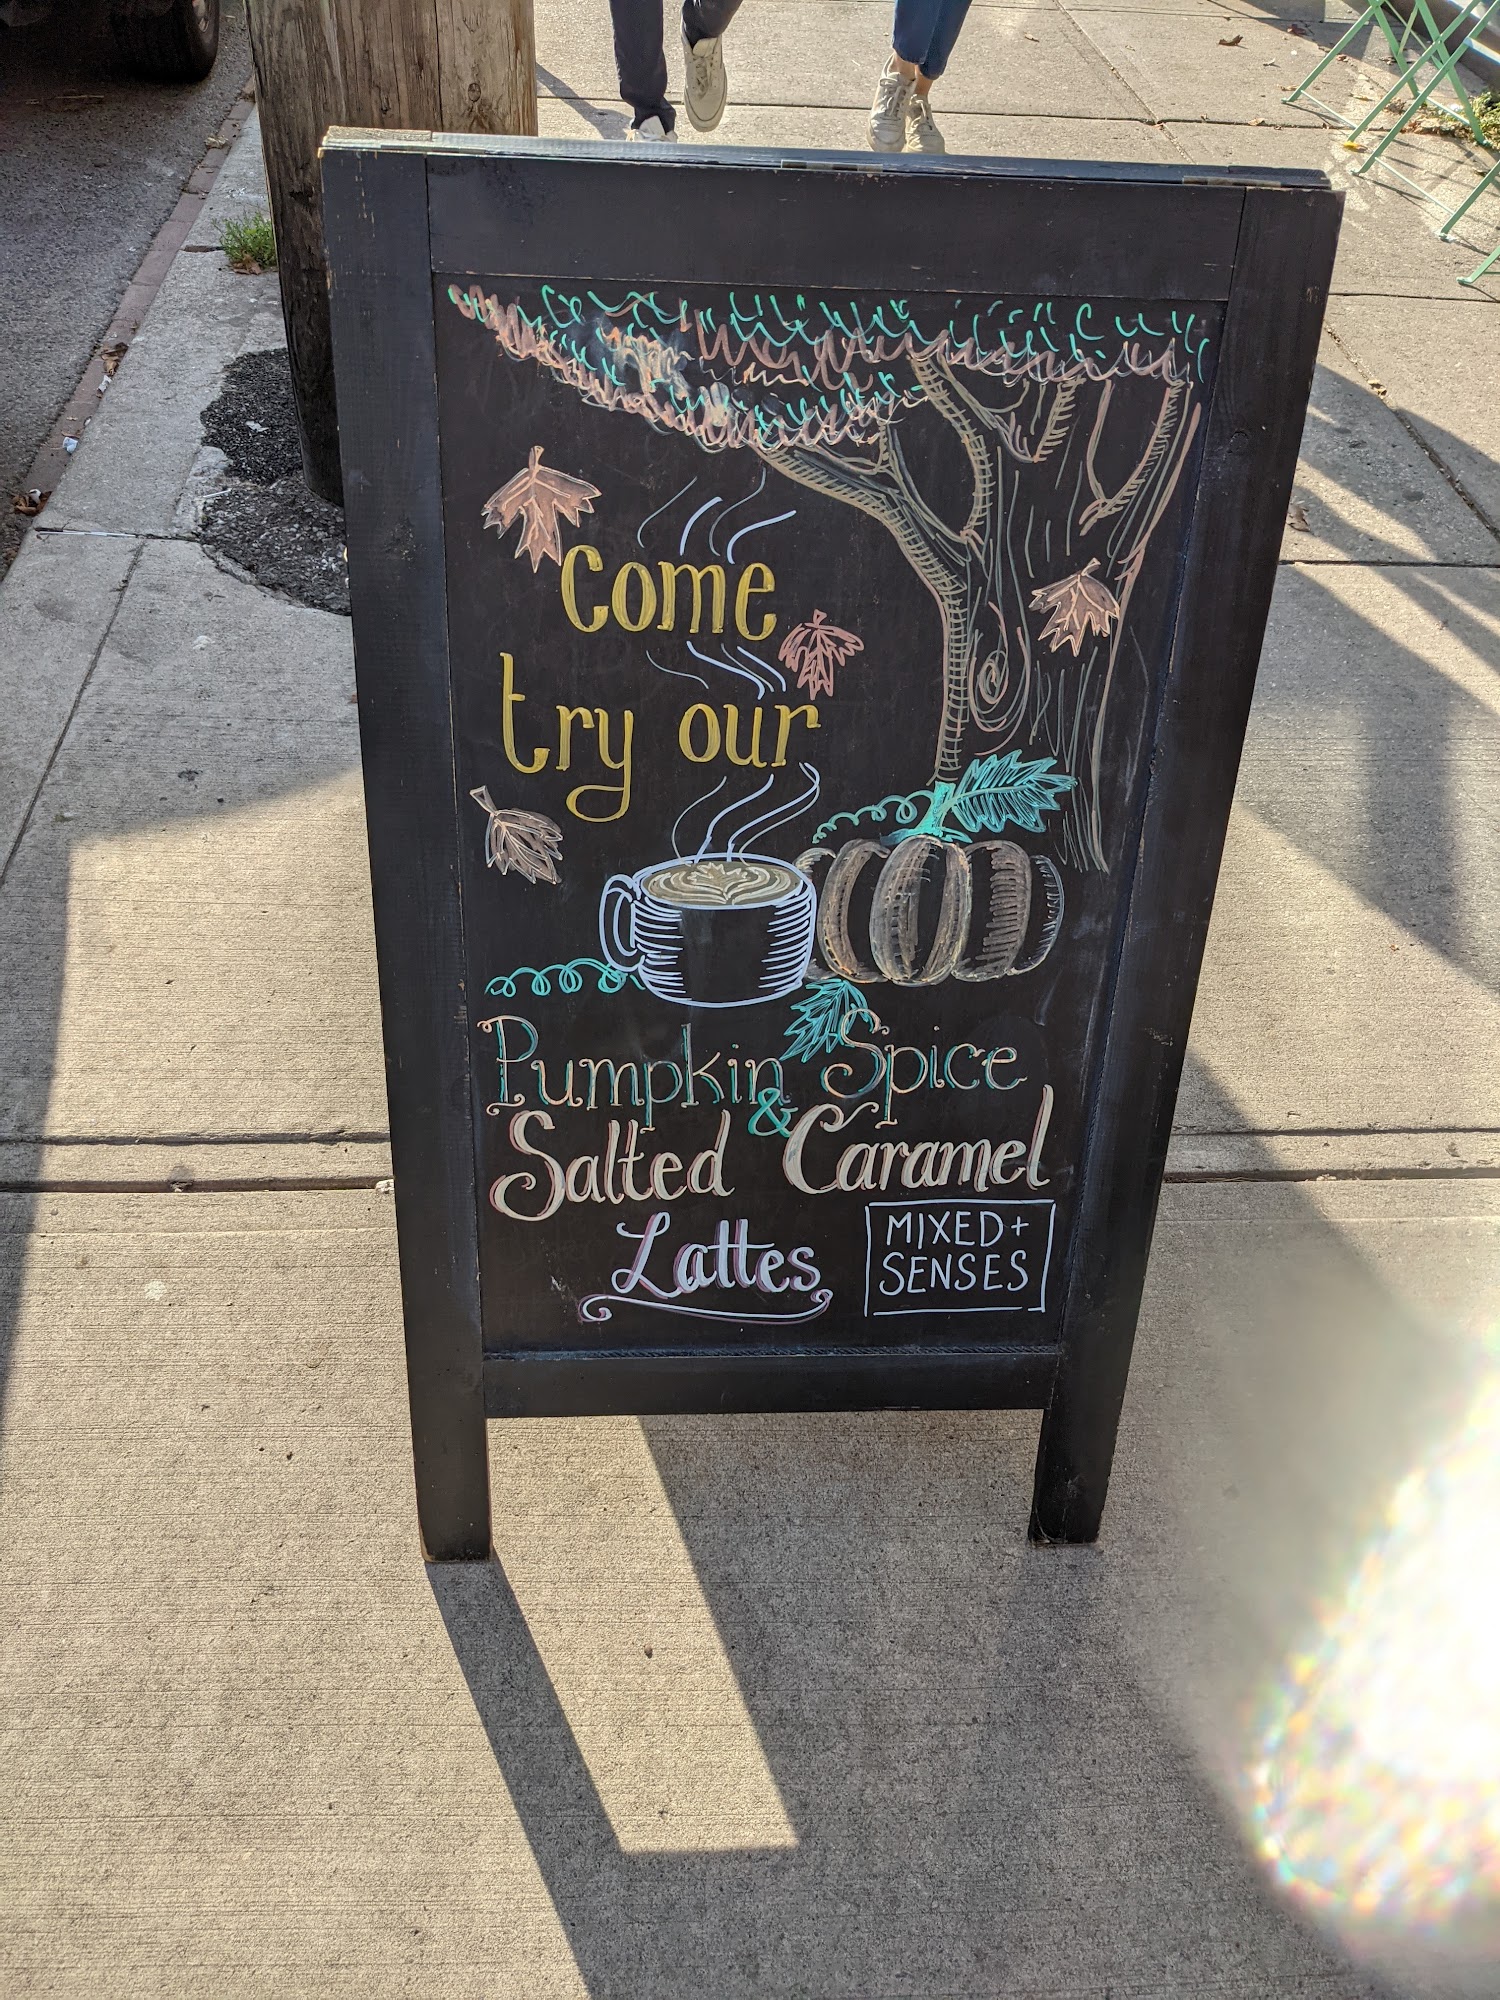 Come
try our
Pumpkin Spice
&
Salted Caramel
Lattes
MIXED+
SENSES